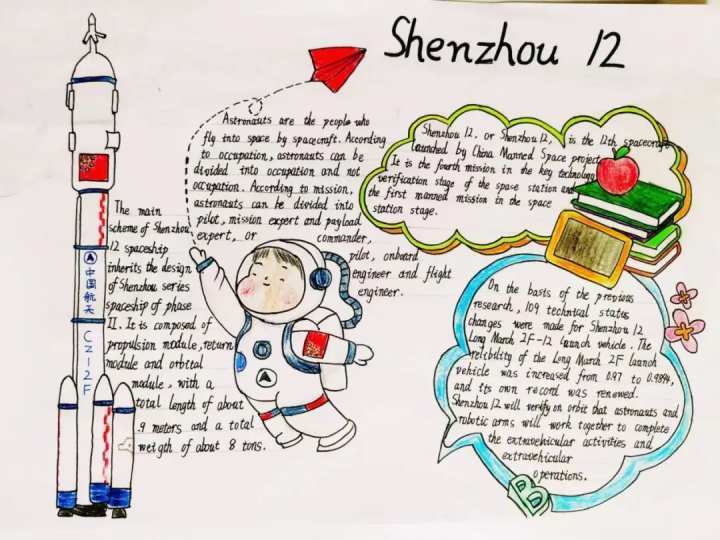 Shenzhou 12
Astronauts are the people who
fly into space by spacecraft. According
to occupation, astronauts can be
divided into occupation and not
occupation. According to mission,
astronauts can be divided into
pilot, mission expert and payload
expert, or commander,
pilot, onboard
engineer and flight
engineer.
Shenzhou 12, or Shenzhou 12, is the 12th spacecraft
launched by China Manned Space project.
It is the fourth mission in the key technology
verification stage of the space station and
the first manned mission in the space
station stage.
The main
scheme of Shenzhou
12 spaceship
inherits the design
of Shenzhou series
spaceship of phase
II. It is composed of
propulsion module, return
module and orbital
module, with a
total length of about
9 meters and a total
weigth of about 8 tons.
中国航天
CZ-12F
On the basts of the previous
research, 109 technical status
changes were made for Shenzhou 12
Long March 2F-12 launch vehicle. The
relibility of the Long March 2F launch
vehicle was increased from 0.97 to 0.9894,
and its own record was renewed.
Shenzhou 12 will verify on orbit that astronauts and
robotic arms will work together to complete
the extravehicular activities and
extravehicular
operations.
B